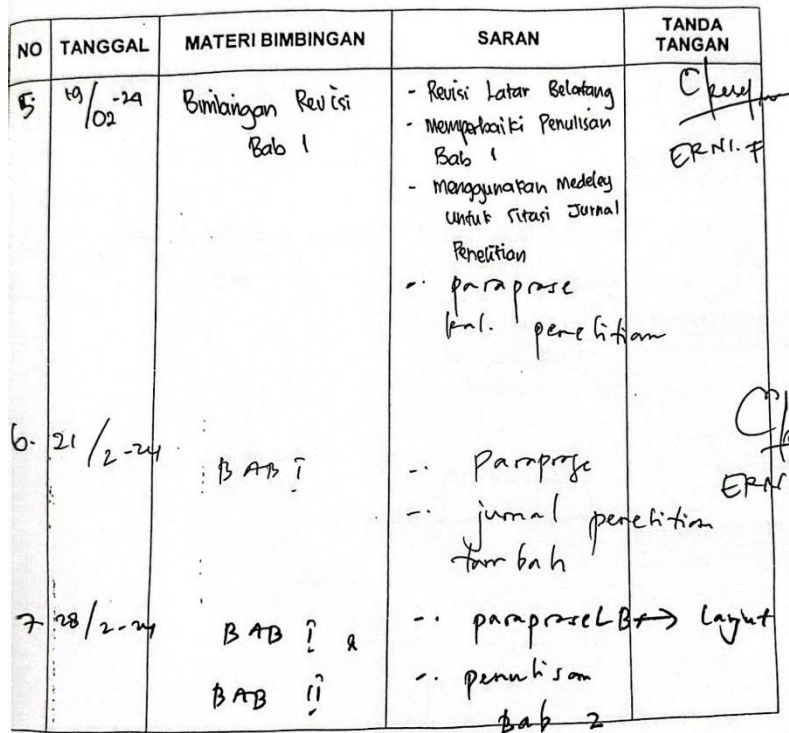 NO TANGGAL MATERI BIMBINGAN SARAN TANDA TANGAN
5 19/02-24 Bimbingan Revisi - Revisi Latar Belakang
Bab 1 - Memperbaiki Penulisan
Bab 1 ERNI.F
- Menggunakan Medeley
untuk Sitasi Jurnal
Penelitian
- paraprase
kal. penelitian
6. 21/2-24 BAB I - Paraprase ERNI
- jurnal penelitian
tambah
7 28/2-24 BAB I & - paraprase LB → Lanjut
BAB II - penulisan
Bab 2